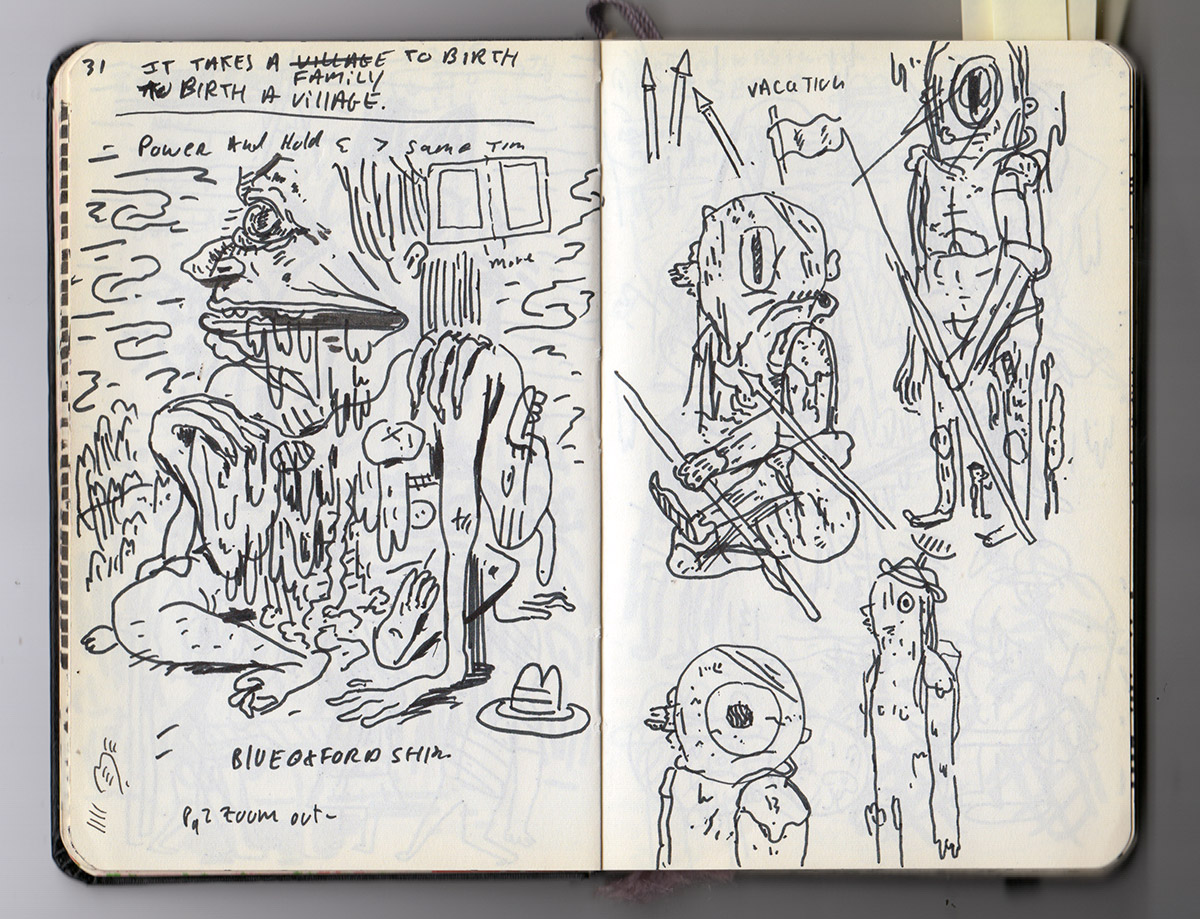 31
IT TAKES A VILLAGE TO BIRTH
FAMILY
TO BIRTH A VILLAGE.
POWER AND HOLD & > SAME TIM
MORE
BLUE OXFORD SHIR
Pg 2 ZOOM OUT-
VACATION